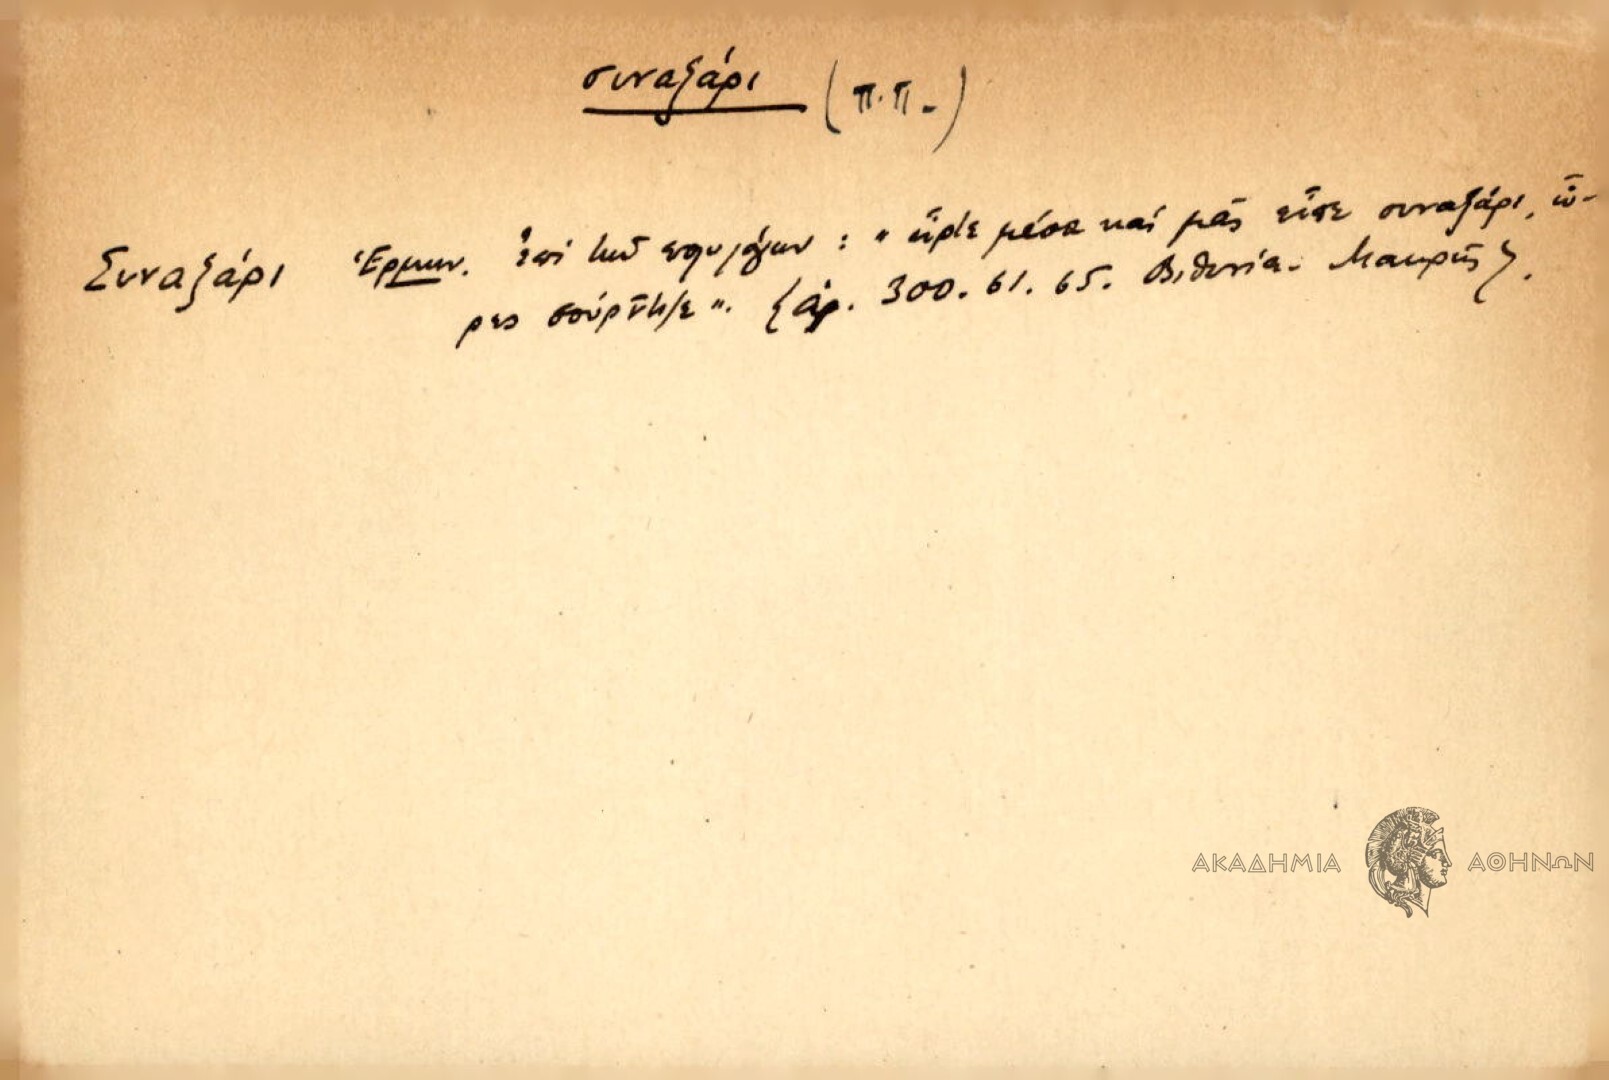 συναξάρι (π.π.)
Συναξάρι Ἑρμην. ἐπὶ τῶν φλυάρων : " ἦρτε μέσα καὶ μᾶς εἶπε συναξάρι, ὧ-
ρες σούρτητε ". {ἀρ. 300. 61. 65. Βιθυνία. Μακρῆς}.
ΑΚΑΔΗΜΙΑ ΑΘΗΝΩΝ